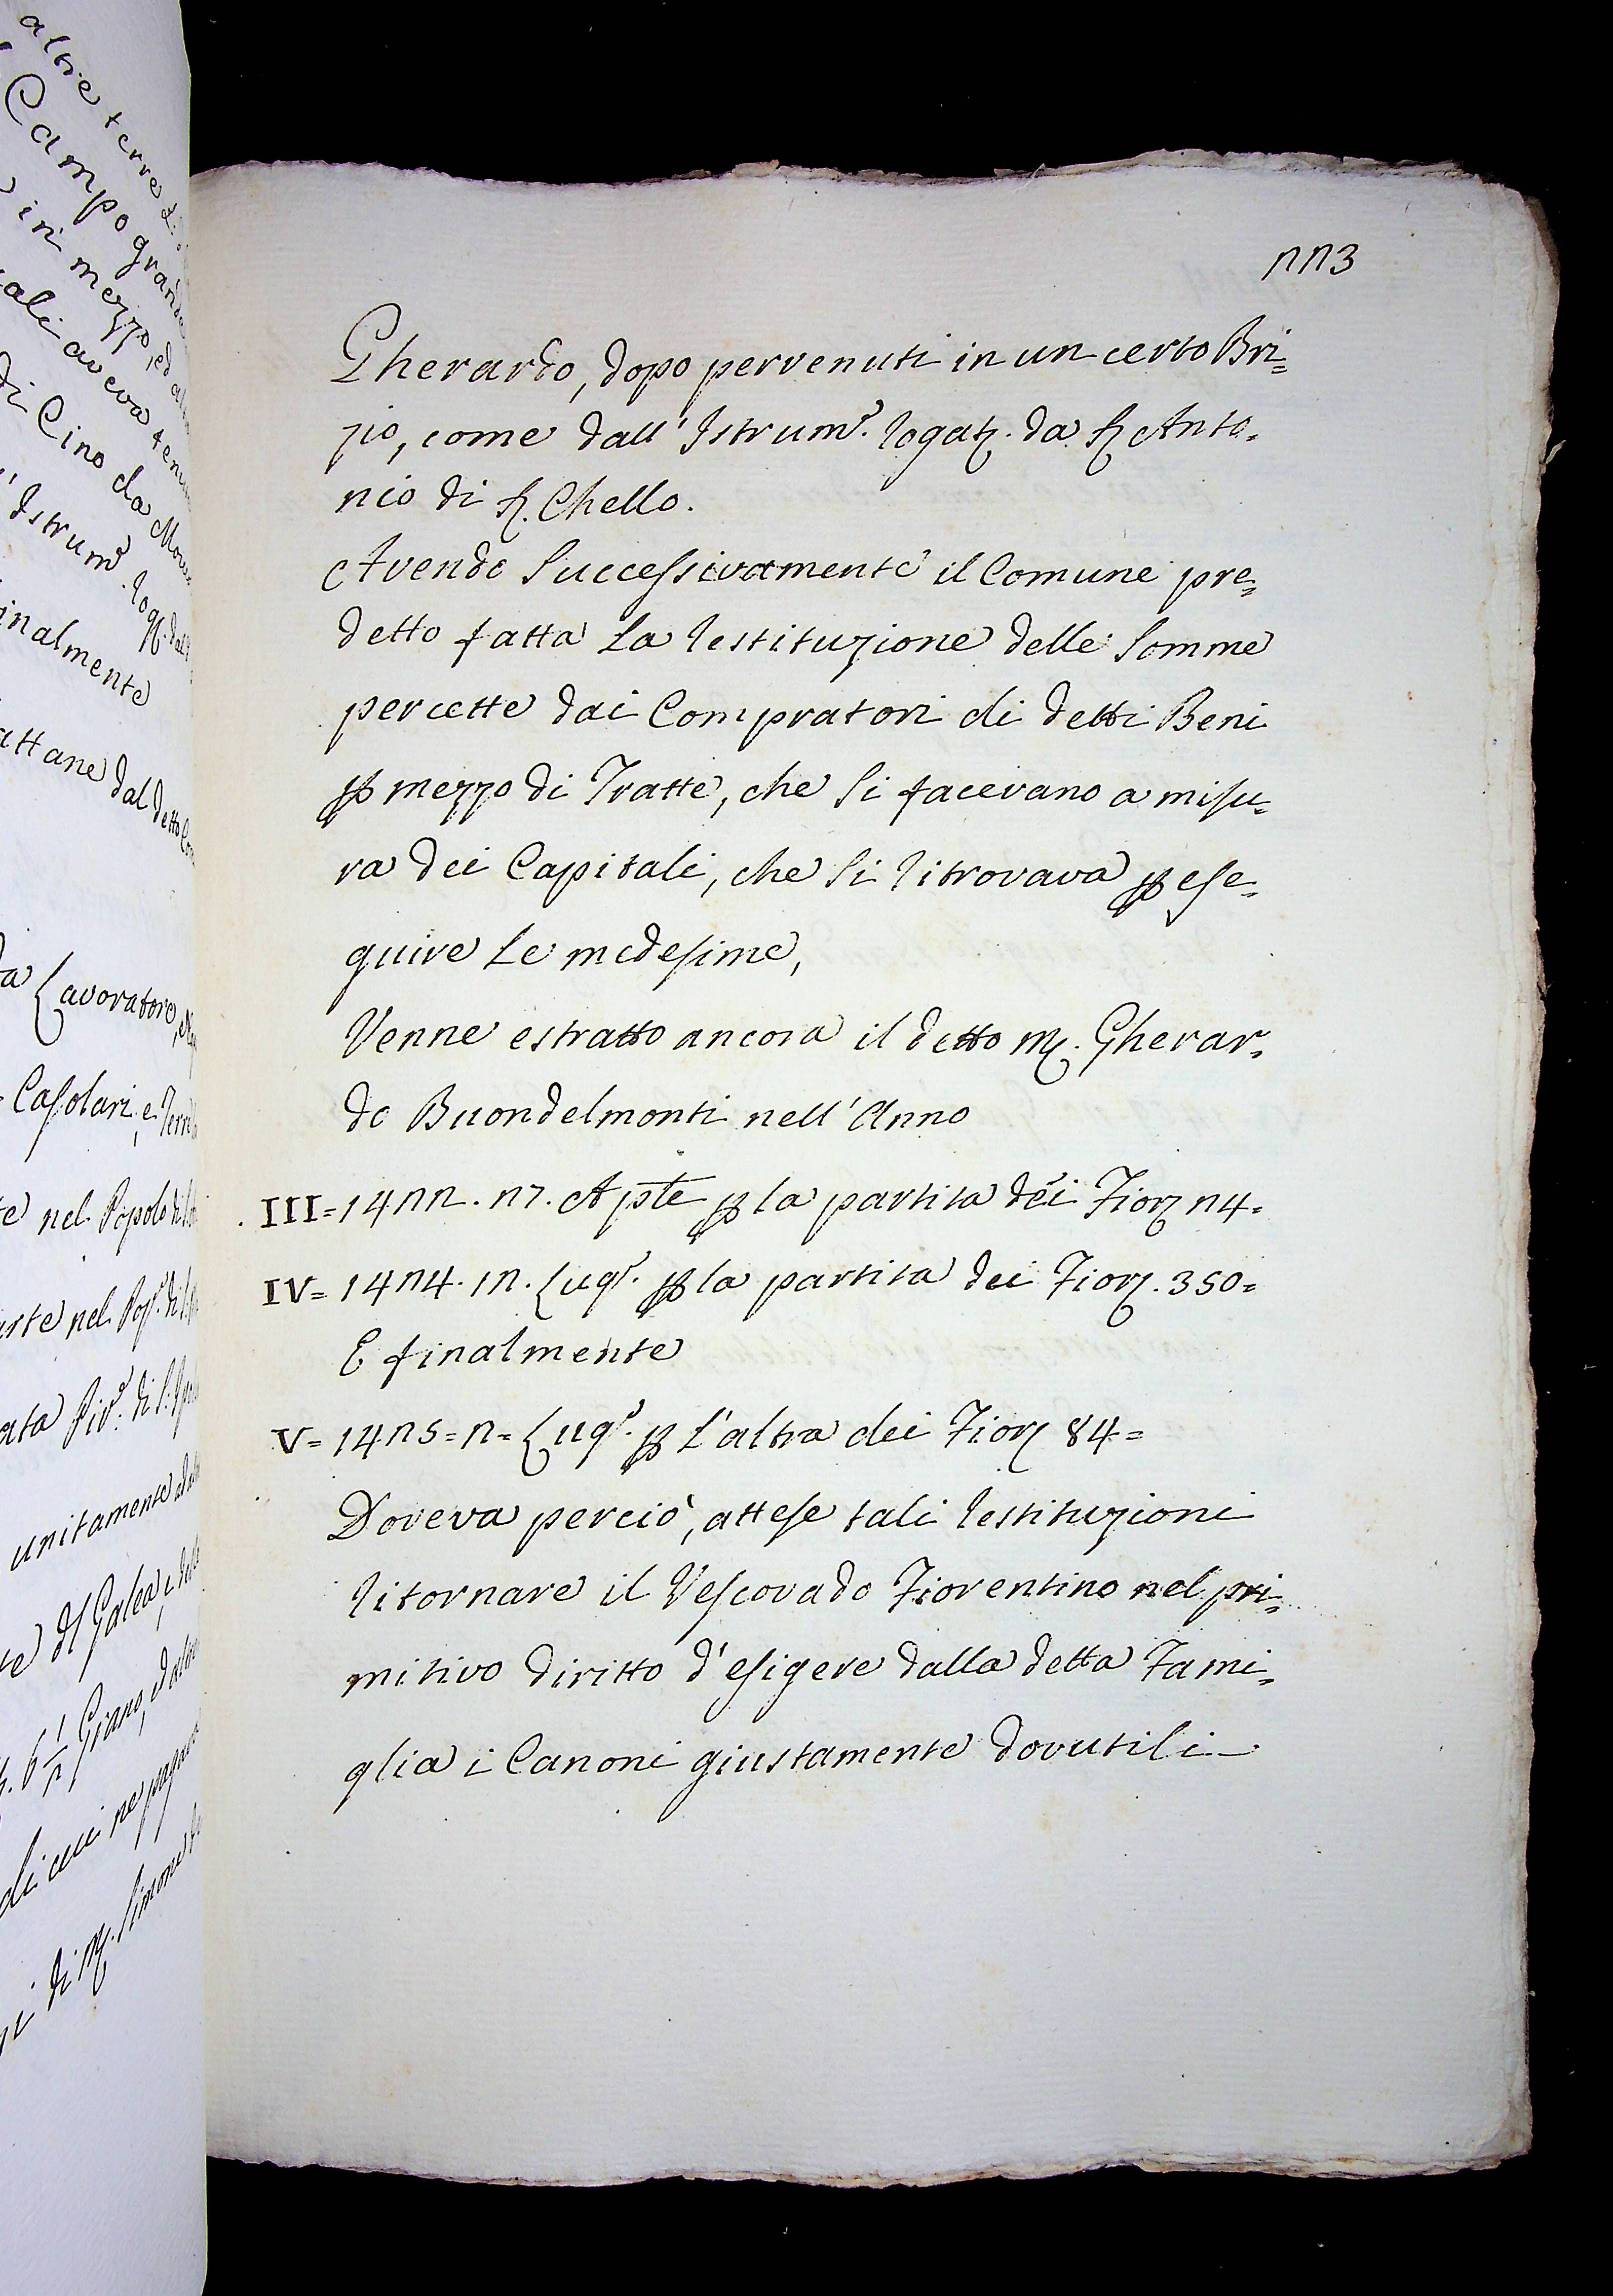 223
Gherardo, dopo pervenuti in un certo Bri=
zio, come dall' Istrum.º rogat. da S. Anto=
nio di S. Chello.
Avendo Successivamente il Comune pre=
detto fatta La restituzione delle Somme
percette dai Compratori di detti Beni
p mezzo di Tratte, che Si facevano a misu=
ra dei Capitali, che Si ritrovava p ese=
guire Le medesime,
Venne estratto ancora il detto M. Gherar=
do Buondelmonti nell' Anno
III=1422. 27. Apṫe p la partita dei Fior. 24=
IV= 1424. 12. Lugº. p la partita dei Fior. 350=
E finalmente
V= 1425=2= Lugº. p L'altra dei Fior. 84=
Doveva perciò, attese tali restituzioni
ritornare il Vescovado Fiorentino nel pri=
mitivo diritto d'esigere dalla detta Fami=
glia i Canoni giustamente dovutili
altre terre
Campo grande
in mezzo, ed
ali aveva
di Cino da
Istrum.º rog.
inalmente
attane dal detto
Lavoratore,
Casolari, e
nel Popolo di
arte nel Pop.º di
ata Piv.º di
unitamente
Galea, e
6 1/2 Giano,
di cui ne
di M. Simone